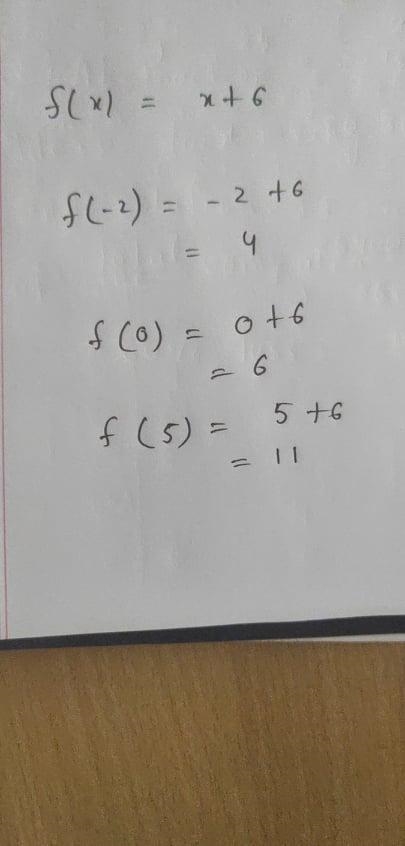 f(x) = x+6
f(-2) = -2 +6
= 4
f(0) = 0+6
= 6
f(5) = 5+6
= 11